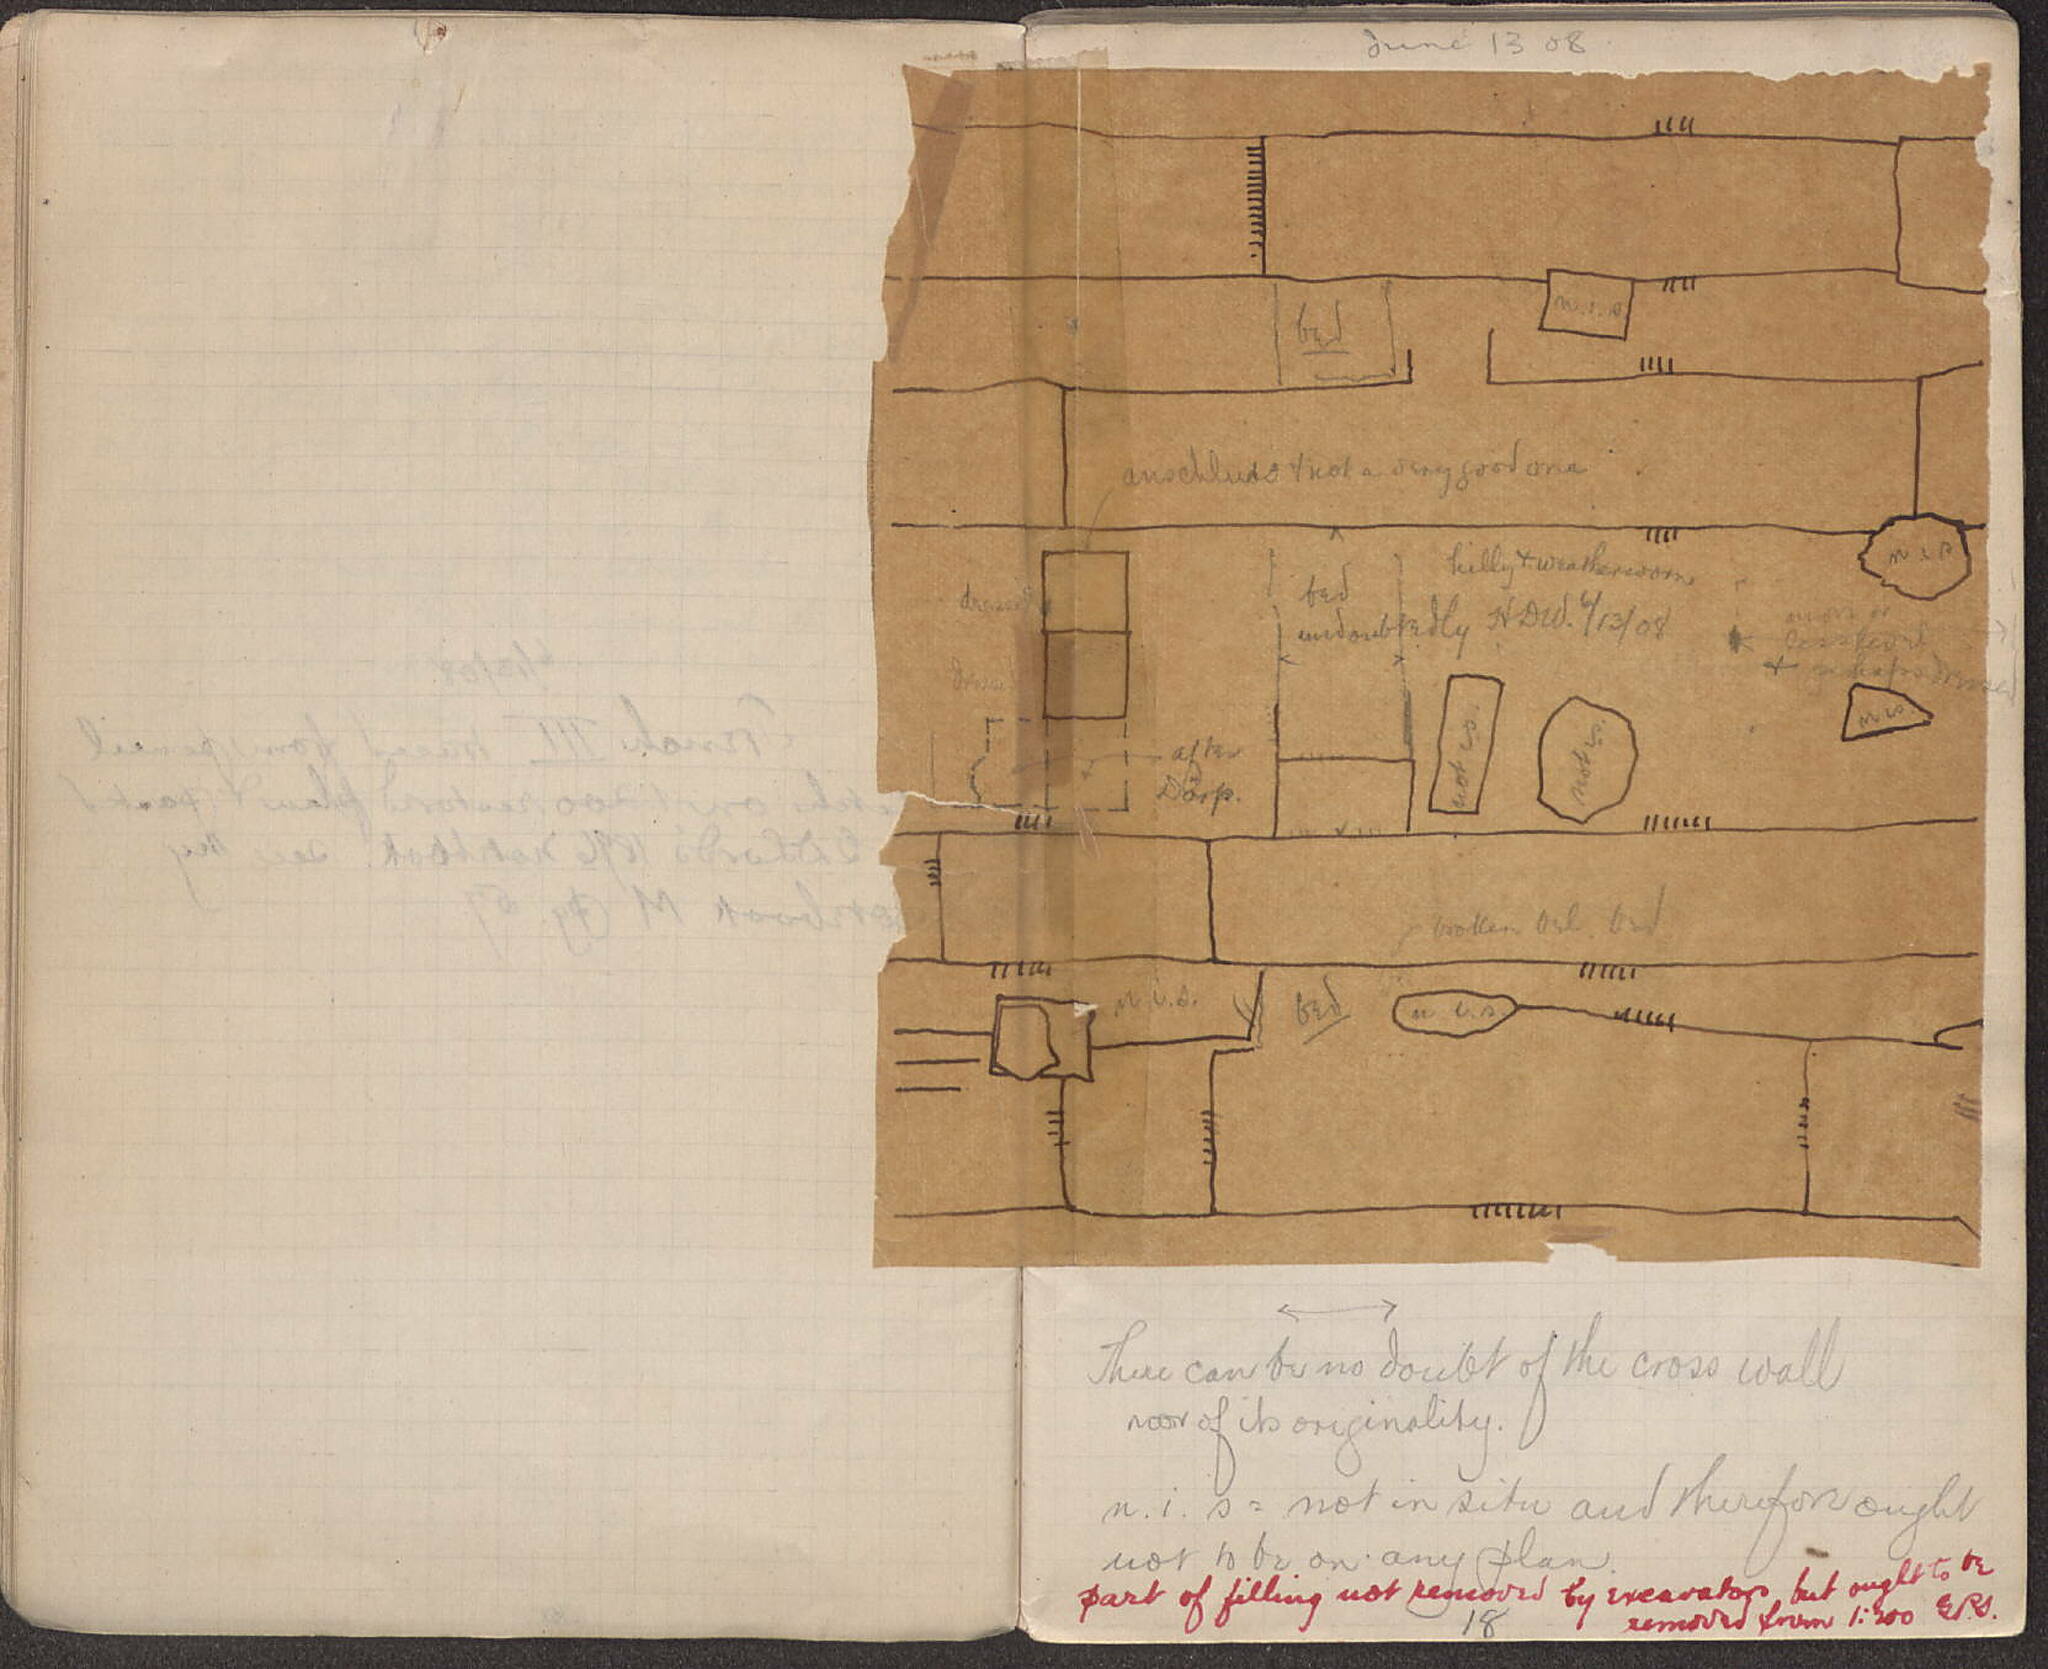 June 13 08
n.i.s.
bed
anschluss + not a very good one
n i s
dressed
bed
undoubtedly HDW. 6/13/08
hilly + weatherworn
more or
less level
+ perhaps dressed
n i s.
not i s.
not i s.
after
Dörp.
broken bel. bed
n. i. s.
bed
n. i. s.
There can be no doubt of the cross wall
nor of its originality.
n. i. s = not in situ and therefore ought
not to be on any plan.
part of filling not removed by excavators but ought to be
removed from 1:200 G.P.S.
18